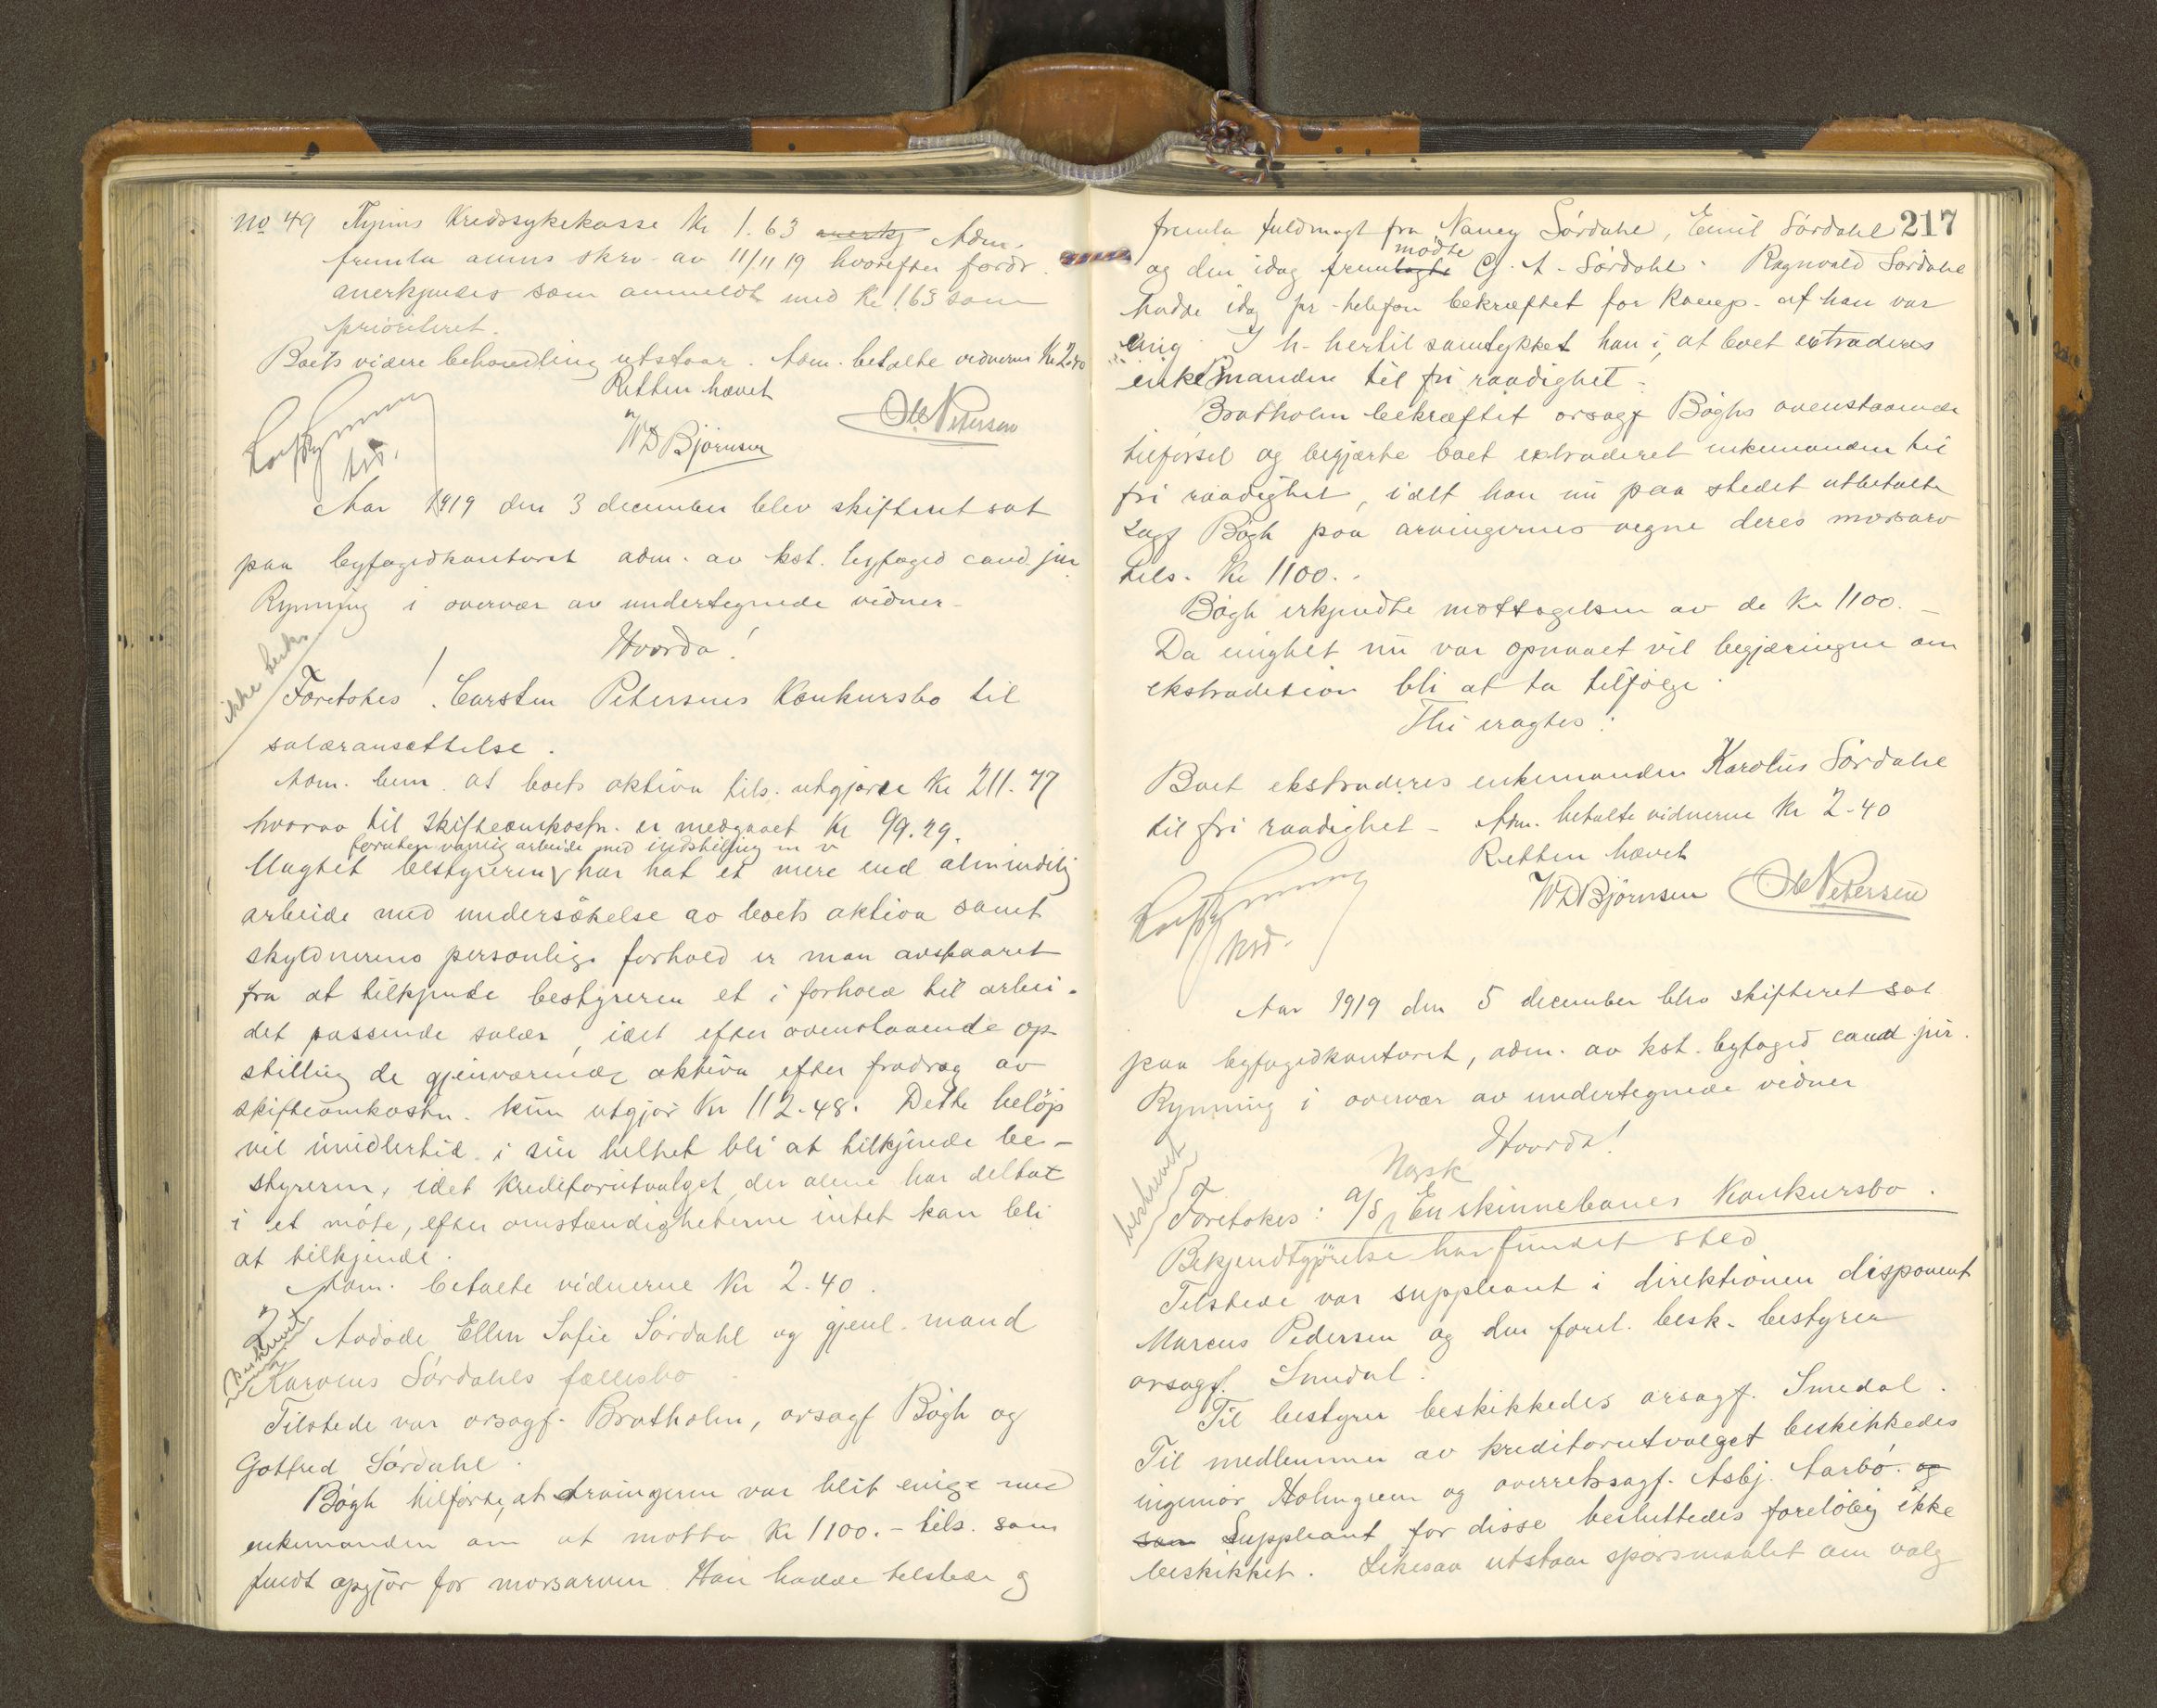 No 49 Kredssykekasse Kr 1.63 anerkj Adm.
fremla anms skrv. av 11/11 19 hvorefter fordr.
anerkjendes som anmeldt med Kr 1.63 som
prioriteret.
Boets videre behandling utstaar. Adm. betalte vidnerne Kr 2.40
Retten hævet
kst.
WD Bjørnsen
Petersen
Aar 1919 den 3 december blev skifteret sat
paa byfogedkontoret adm. av kst. byfoged cand. jur
Rynning i overvær av undertegnede vidner.
Hvorda!
ikke
Foretokes! Carsten Petersens Konkursbo til
salæransættelse.
Adm. bem. at boets aktiva tils. utgjorde Kr 211.77
hvorav til skifteomkostn. er medgaaet Kr 99.29.
foruten vanlig arbeide med indstilling m v
Uagtet bestyreren har hat et mere end almindelig
arbeide med undersøkelse av boets aktiva samt
skyldnerens personlige forhold er man avskaaret
fra at tilkjende bestyreren et i forhold til arbei-
det passende salær, idet efter ovenstaaende op
stilling de gjenværende aktiva efter fradrag av
skifteomkostn. kun utgjør Kr 112.48. Dette beløp
vil imidlertid i sin helhet bli at tilkjende be-
styreren, idet kreditorutvalget, der alene har deltat
i et møte, efter omstændigheterne intet kan bli
at tilkjende.
Adm. betalte vidnerne Kr 2.40.
2
Avdøde Ellen Sofie Sørdahl og gjenl. mand
Karolius Sørdahls fællesbo
Tilstede var orsagf. Bratholm, orsagf Bøgh og
Gotfred Sørdahl.
Bøgh tilførte, at arvingerne var blit enige med
enkemanden om at motta Kr 1100.- tils. som
fuldt opgjør for morsarven. Han hadde tilstede og
217
fremla fuldmagt fra Nancy Sørdahl, Emil Sørdahl
mødte
og den idag fremlagte A. Sørdahl. Ragnvald Sørdahl
hadde idag pr telefon bekræftet for at han var
enig I h. hertil samtykket han i, at boet extraderes
enkemanden til fri raadighet.
Bratholm bekræftet orsagf Bøghs ovenstaaende
tilførsel og begjærte boet extraderet enkemanden til
fri raadighet, idet han nu paa stedet utbetalte
sagf Bøgh paa arvingernes vegne deres morsarv
tils. Kr 1100.-
Bøgh erkjendte mottagelsen av de Kr 1100.-
Da enighet nu var opnaaet vil begjæringen om
ekstradition bli at ta tilfølge.
Thi eragtes:
Boet ekstraderes enkemanden Karolius Sørdahl
til fri raadighet - Adm. betalte vidnerne Kr 2.40
Retten hævet
WD Bjørnsen Petersen
kst.
Aar 1919 den 5 december blev skifteret sat
paa byfogedkontoret, adm. av kst. byfoged cand jur.
Rynning i overvær av undertegnede vidner
Hvorda!
beskrevet
Norsk
Foretokes: A/S Enskinnebanes Konkursbo.
Bekjendtgjørelse har fundet sted
Tilstede var suppleant i direktionen disponent
Marcus Pedersen og den forel. besk. bestyrer
orsagf. Smedal.
Til bestyrer beskikkedes orsagf. Smedal.
Til medlemmer av kreditorutvalget beskikkedes
ingeniør Holmgren og overretssagf. Asbj. Aarbø. og
som Suppleant for disse besluttedes foreløbig ikke
beskikket. Likesaa utstaar spørsmaalet om valg